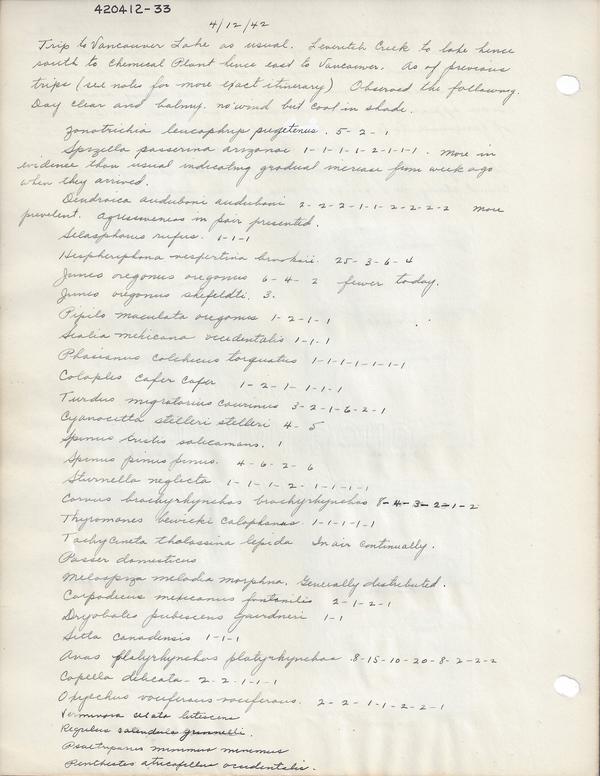 420412-33
4/12/42
Trip to Vancouver Lake as usual. Leverich Creek to lake hence
south to Chemical Plant hence east to Vancouver. As of previous
trips (see notes for more exact itinerary) Observed the following.
Day clear and balmy. no wind but cool in shade.
Zonotrichia leucophrys pugetensis. 5-2-1
Spizella passerina arizonae 1-1-1-1-2-1-1-1. more in
evidence than usual indicating gradual increase from week ago
when they arrived.
Dendroica auduboni auduboni 2-2-2-1-1-2-2-2-2 more
prevelent. Agressiveness in pair presented.
Selasphorus rufus. 1-1-1
Hesperiphona vespertina brooksi. 25-3-6-4
Junco oregonus oregonus 6-4-2 fewer today.
Junco oregonus shufeldti. 3.
Pipilo maculata oregonus 1-2-1-1
Sialia mexicana occidentalis 1-1-1
Phasianus colchicus torquatus 1-1-1-1-1-1-1
Colaptes cafer cafer 1-2-1-1-1-1
Turdus migratorius caurinus 3-2-1-6-2-1
Cyanocitta stelleri stelleri 4-5
Spinus tristis salicamans. 1
Spinus pinus pinus. 4-6-2-6
Sturnella neglecta 1-1-1-2-1-1-1-1
Corvus brachyrhynchos brachyrhynchos 8-4-3-2-1-2
Thyromanes bewicki calophonus. 1-1-1-1-1
Tachycineta thalassina lepida In air continually.
Passer domesticus
Melospiza melodia morphna. Generally distributed.
Carpodacus mexicanus frontalis 2-1-2-1
Dryobates pubescens gairdneri 1-1
Sitta canadensis 1-1-1
Anas platyrhynchos platyrhynchos 8-15-10-20-8-2-2-2
Capella delicata - 2-2-1-1-1
Oxyechus vociferous vociferous. 2-2-1-1-2-2-1
Vermivora celata lutescens
Regulus calendula grinnelli.
Psaltriparus minimus minimus
Penthestes atricapillus occidentalis.